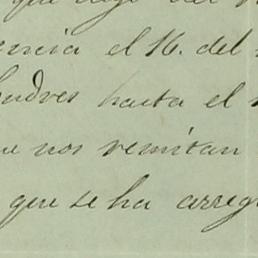 que
encia el 16. del
Londres hasta el
ue nos remitan
que se ha arreg